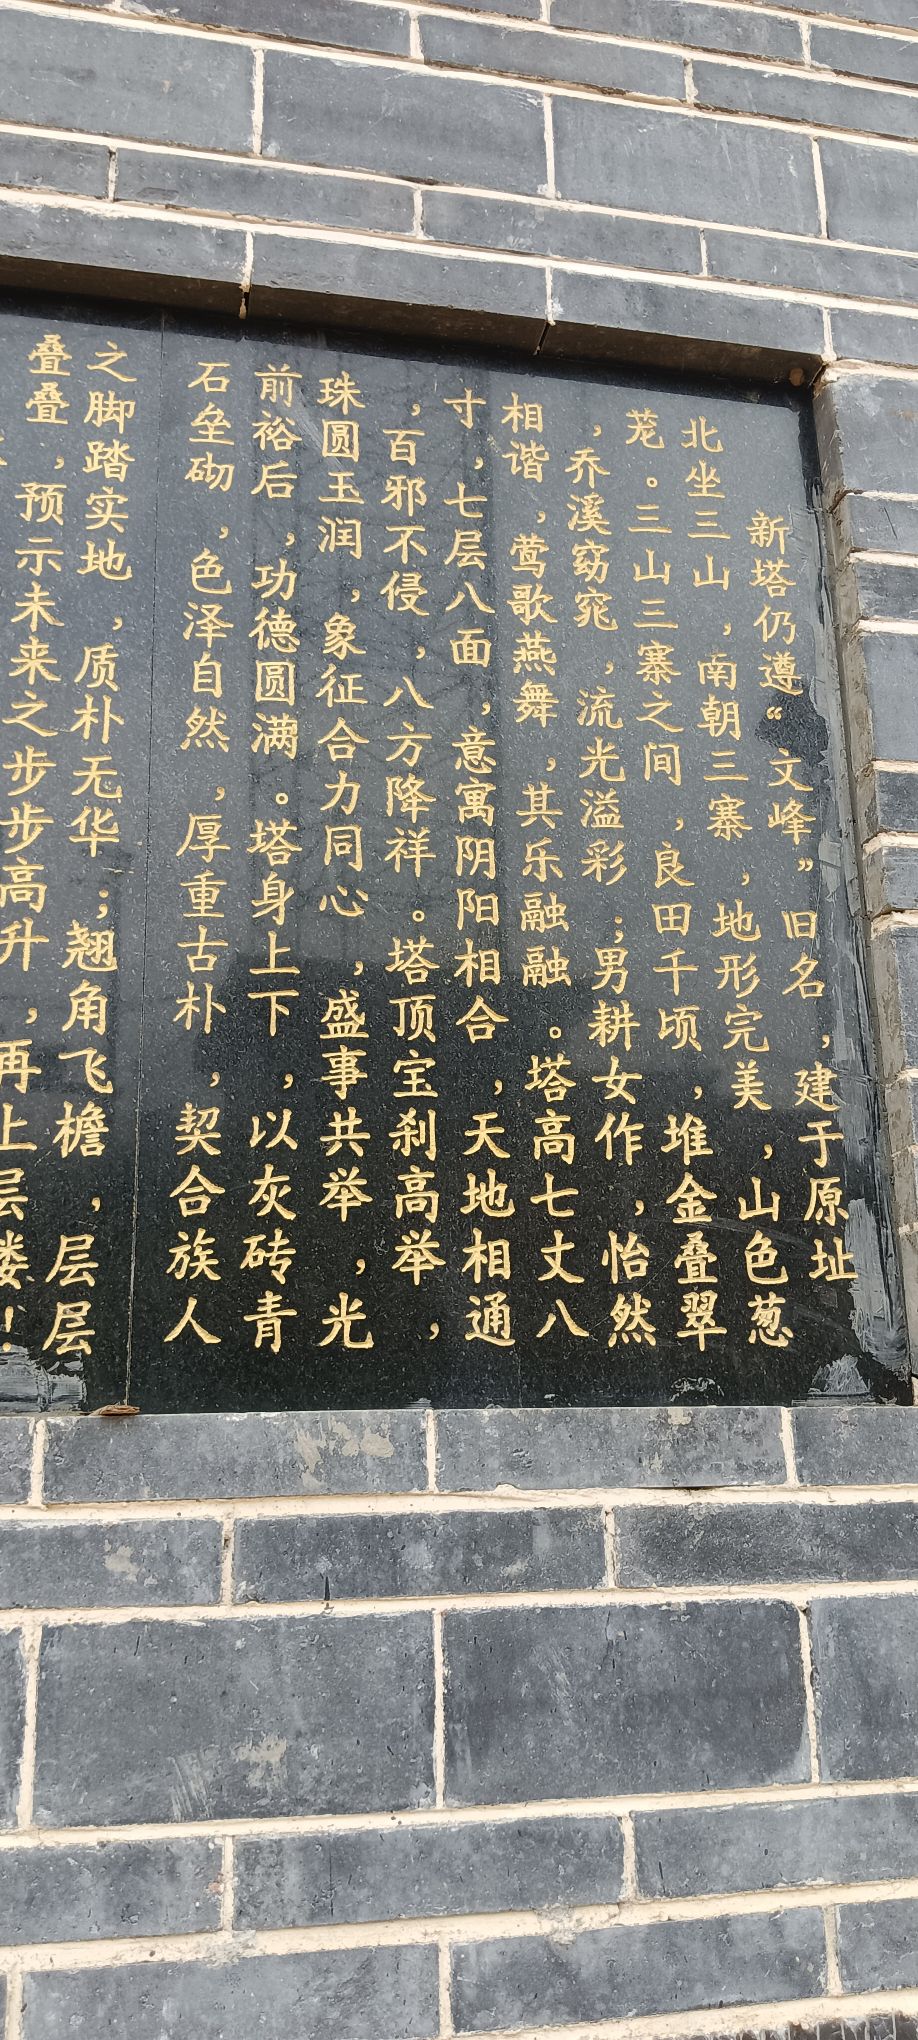 新塔仍遵“文峰”旧名，建于原址
北坐三山，南朝三寨，地形完美，山色葱
茏。三山三寨之间，良田千顷，堆金叠翠
，乔溪窈窕，流光溢彩；男耕女作，怡然
相谐，莺歌燕舞，其乐融融。塔高七丈八
寸，七层八面，意寓阴阳相合，天地相通
，百邪不侵，八方降祥。塔顶宝刹高举，
珠圆玉润，象征合力同心，盛事共举，光
前裕后，功德圆满。塔身上下，以灰砖青
石垒砌，色泽自然，厚重古朴，契合族人
之脚踏实地，质朴无华；翘角飞檐，层层
叠叠，预示未来之步步高升，再上层楼！